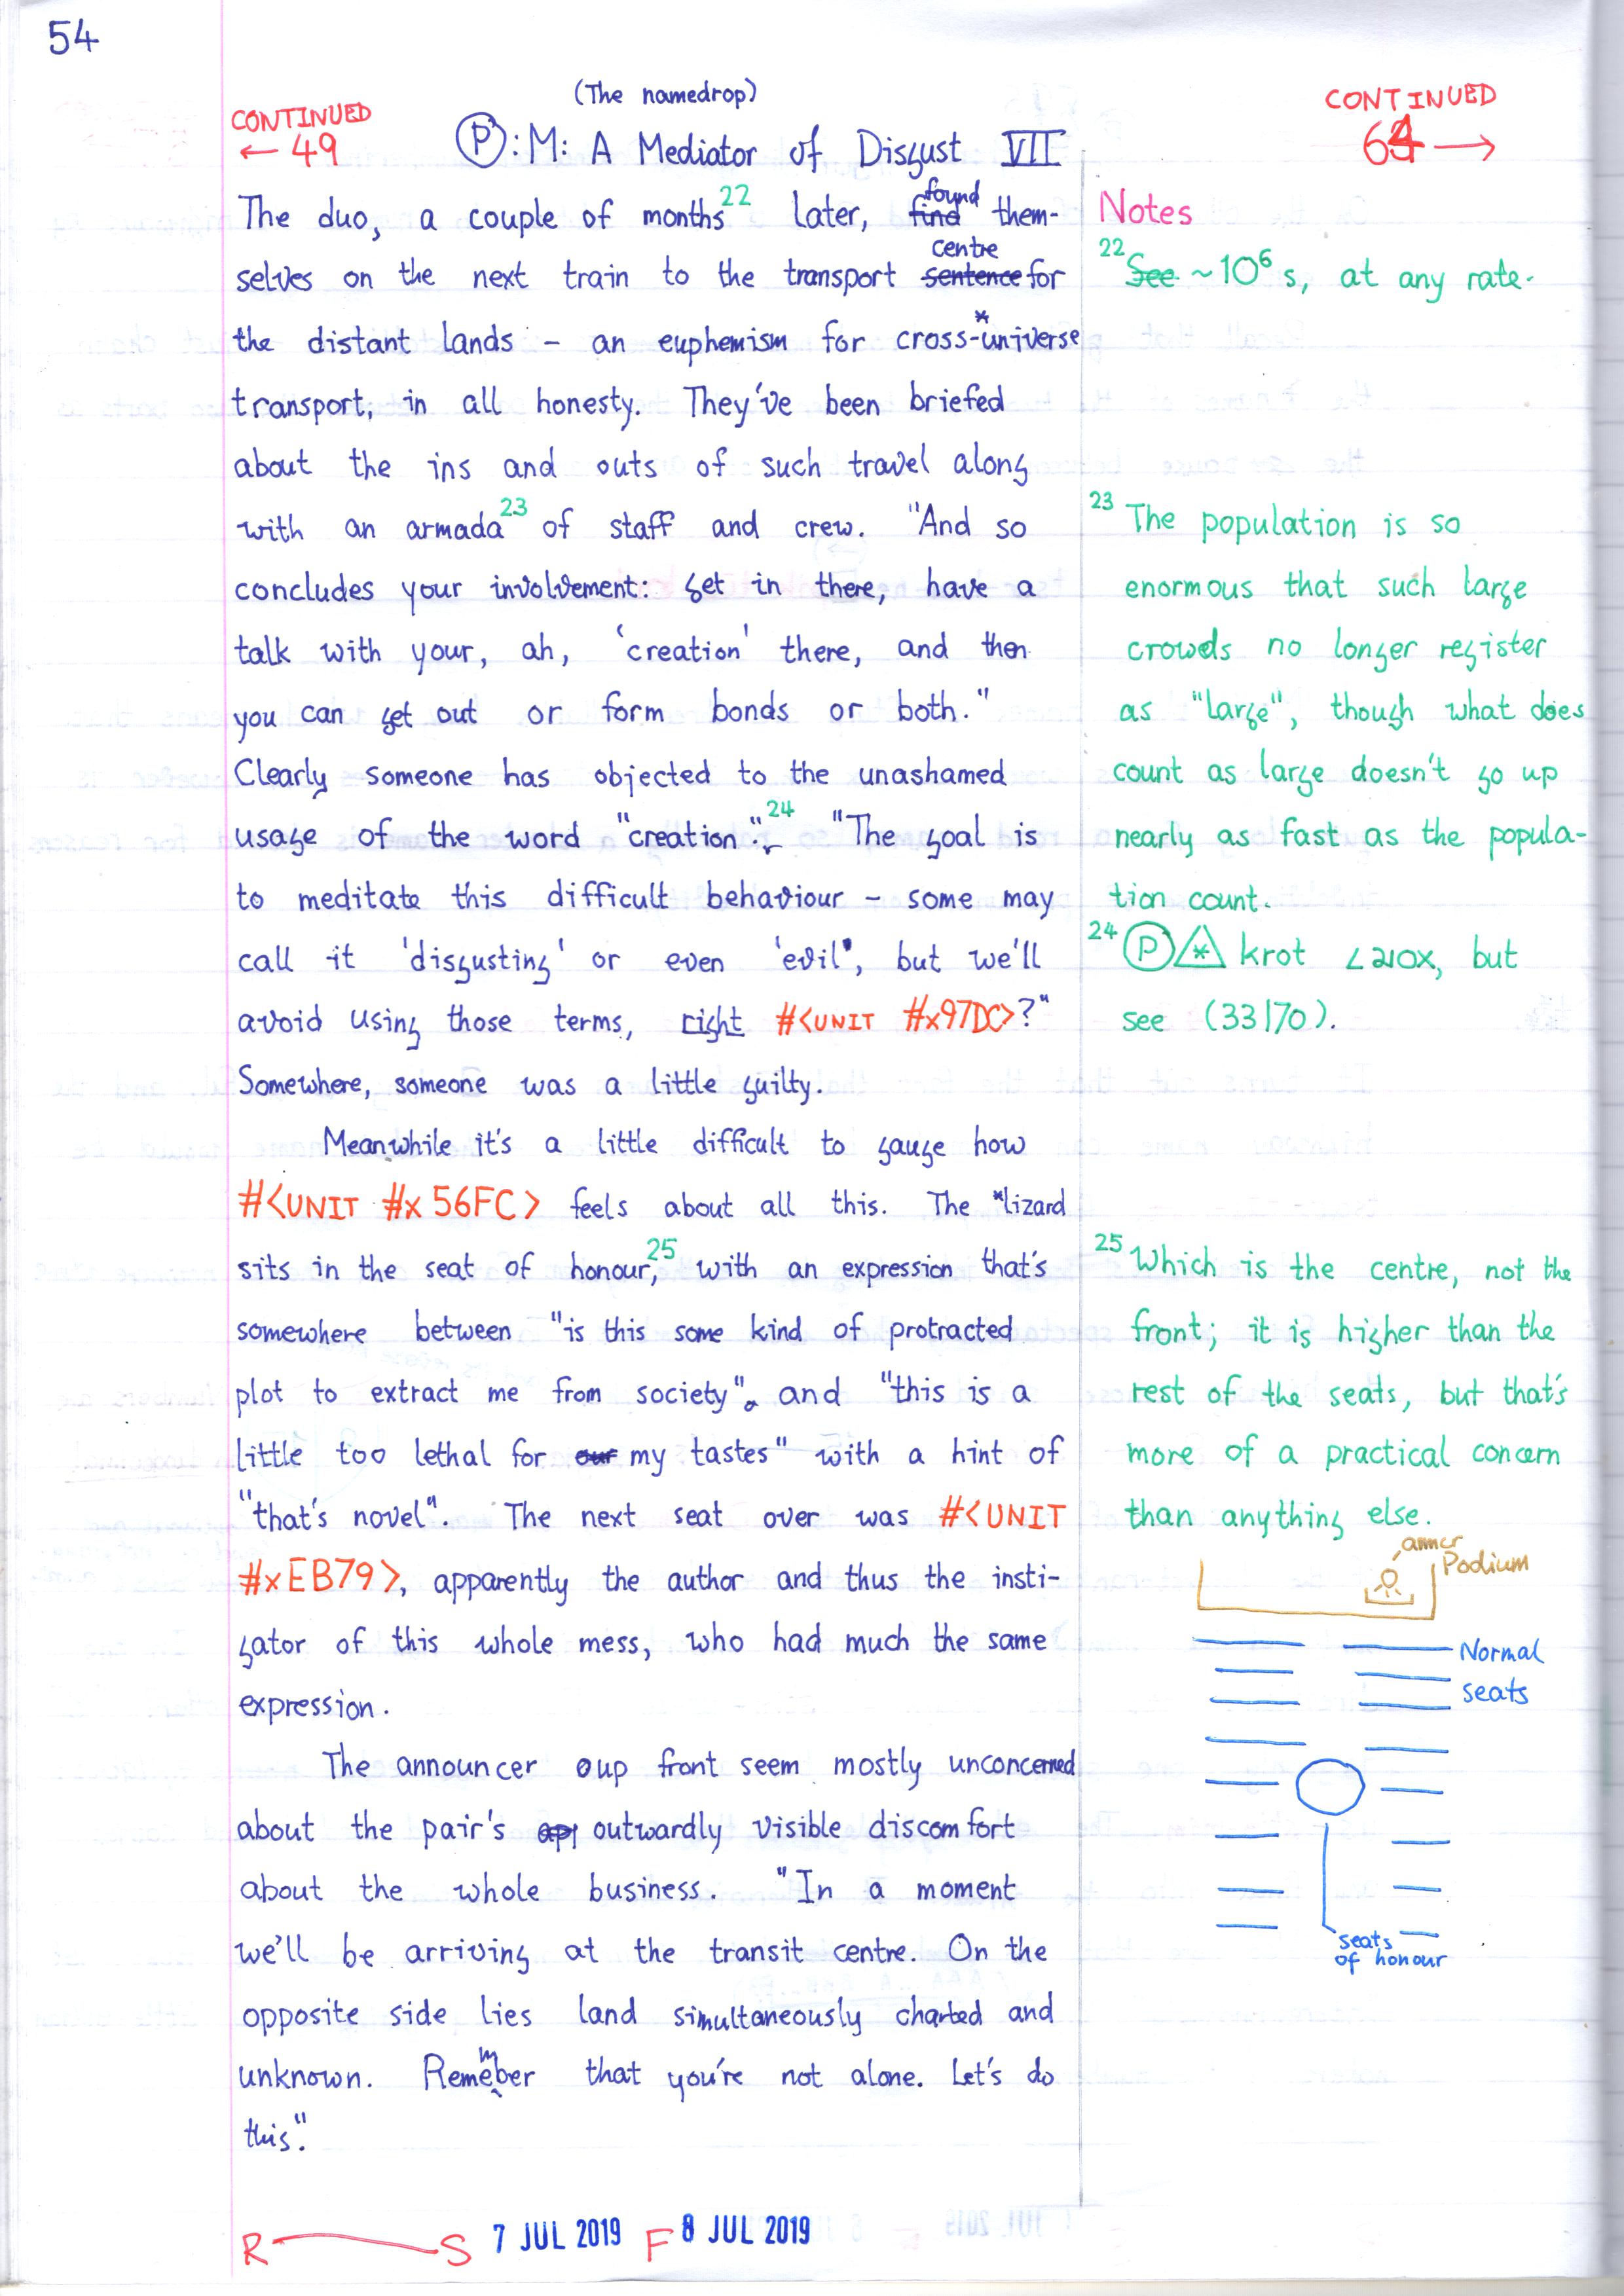 54
(The namedrop)
CONTINUED
← 49
Ⓟ:M: A Mediator of Disgust VII
CONTINUED
64 →
The duo, a couple of months²² later, found them-
selves on the next train to the transport centre for
the distant lands – an euphemism for cross-*universe
transport, in all honesty. They've been briefed
about the ins and outs of such travel along
with an armada²³ of staff and crew. "And so
concludes your involvement: get in there, have a
talk with your, ah, 'creation' there, and then
you can get out or form bonds or both."
Clearly someone has objected to the unashamed
usage of the word "creation".²⁴ "The goal is
to meditate this difficult behaviour – some may
call it 'disgusting' or even 'evil', but we'll
avoid using those terms, right #<UNIT #x97DC>?"
Somewhere, someone was a little guilty.
Meanwhile it's a little difficult to gauge how
#<UNIT #x56FC> feels about all this. The *lizard
sits in the seat of honour,²⁵ with an expression that's
somewhere between "is this some kind of protracted
plot to extract me from society", and "this is a
little too lethal for my tastes" with a hint of
"that's novel". The next seat over was #<UNIT
#xEB79>, apparently the author and thus the insti-
gator of this whole mess, who had much the same
expression.
The announcer up front seem mostly unconcerned
about the pair's outwardly visible discomfort
about the whole business. "In a moment
we'll be arriving at the transit centre. On the
opposite side lies land simultaneously charted and
unknown. Remember that you're not alone. Let's do
this."
Notes
²² See ~10⁶ s, at any rate.
²³ The population is so
enormous that such large
crowds no longer register
as "large", though what does
count as large doesn't go up
nearly as fast as the popula-
tion count.
²⁴ Ⓟ krot but
see (33170).
²⁵ Which is the centre, not the
front; it is higher than the
rest of the seats, but that's
more of a practical concern
than anything else.
anncr
Podium
Normal
seats
seats
of honour
R S 7 JUL 2019 F 8 JUL 2019